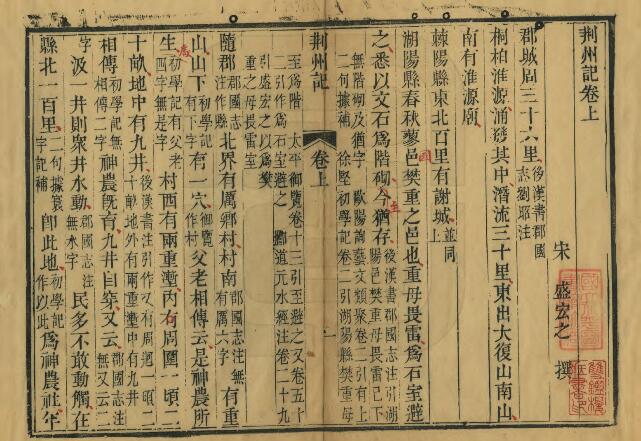 荆州記卷上
宋 盛宏之 撰
郡城周三十六里後漢書郡國志劉昭注
桐柏淮源涌發其中潛流三十里東出大復山南山
南有淮源廟
棘陽縣東北百里有謝城並同上
湖陽縣春秋蓼邑樊重之邑也重母畏雷爲石室避
之悉以文石爲階砌今猶存後漢書郡國志注引湖陽邑樊重母畏雷已下無階砌及猶字 歐陽詢藝文類聚卷二引有上二句據補 徐堅初學記卷二引湖陽縣樊重母
荆州記 卷上 一
至爲階 太平御覽卷十三引至避之又卷五十二引作爲石室避之 酈道元水經注卷二十九引盛宏之以爲樊重之母畏雷室
隨郡國志注作縣北界有厲鄉村村南郡國志注無有厲六字有重
山山下初學記有下字有一穴御覽作石穴父老相傳云是神農所
生初學記有父老四字無是字村西有兩重塹內有周圍一頃二
十畝地中有九井後漢書注引作又有周迴一頃二十畝地外有兩重塹中有九井
相傳初學記無相傳二字神農既育九井自穿又云郡國志注無又云二字
汲一井則衆井水動郡國志注無水字民多不敢動觸在
縣北一百里二句據寰宇記補卽此地初學記作以此爲神農社年